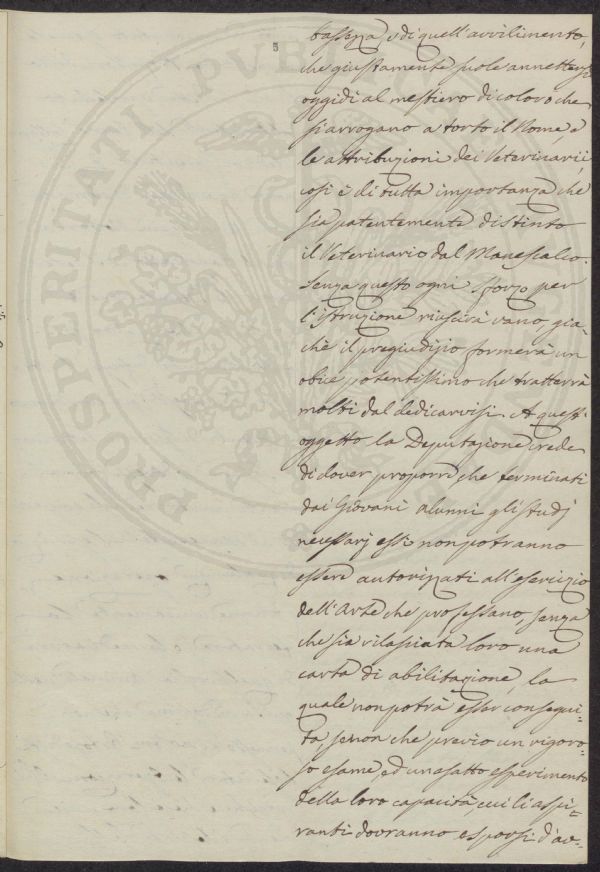 5
bassezza, e di quell'avvilimento,
che giustamente suole annettersi
oggidì al mestiero di coloro che
si arrogano a torto il Nome, e
le attribuzioni dei Veterinarii;
così è di tutta importanza che
sia patentemente distinto
il Veterinario dal Manescalco.
Senza questo ogni sforzo per
l'istruzione riuscirà vano, gia-
chè il pregiudizio formerà un
obice potentissimo che tratterrà
molti dal dedicarvisi. A quest'
oggetto la Deputazione crede
di dover proporre che terminati
dai Giovani alunni gli studj
necessarj essi non potranno
essere autorizzati all'esercizio
dell'Arte che professano, senza
che sia rilasciata loro una
carta di abilitazione, la
quale non potrà esser consegui-
ta, se non che previo un rigoro-
so esame, ed un esatto esperimento
della loro capacità, cui li aspi-
ranti dovranno esporsi d'av-
PROSPERITATI PVBLICAE